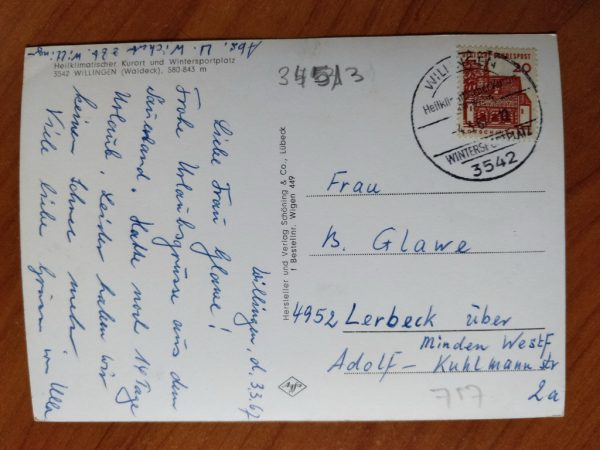 Abs. U. Wichert z. Zt. Willingen
Heilklimatischer Kurort und Wintersportplatz
3542 WILLINGEN (Waldeck), 580-843 m
Willingen, d. 3.3.67
Liebe Frau Glawe!
Frohe Urlaubsgrüsse aus dem
Sauerland. Hatte noch 14 Tage
Urlaub. Leider haben wir
keinen Schnee mehr.
Viele liebe Grüsse von Ulla
Hersteller und Verlag Schöning & Co., Lübeck
1 Bestellnr. Wigen 449
34513
DEUTSCHE BUNDESPOST
20
WILLINGEN
WINTERSPORTPLATZ
3542
Frau
B. Glawe
4952 Lerbeck über
Minden Westf
Adolf-Kuhlmannstr
2a
717